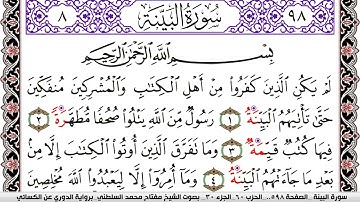 ٨ سُورَةُ البَيِّنَةِ ٩٨
بِسْمِ اللَّهِ الرَّحْمَٰنِ الرَّحِيمِ
لَمْ يَكُنِ الَّذِينَ كَفَرُوا مِنْ أَهْلِ الْكِتَابِ وَالْمُشْرِكِينَ مُنفَكِّينَ
حَتَّى تَأْتِيَهُمُ الْبَيِّنَةُ ١ رَسُولٌ مِنَ اللَّهِ يَتْلُوا صُحُفًا مُطَهَّرَةً ٢
فِيهَا كُتُبٌ قَيِّمَةٌ ٣ وَمَا تَفَرَّقَ الَّذِينَ أُوتُوا الْكِتَابَ إِلَّا مِنْ
بَعْدِ مَا جَاءَتْهُمُ الْبَيِّنَةُ ٤ وَمَا أُمِرُوا إِلَّا لِيَعْبُدُوا اللَّهَ مُخْلِصِينَ
سورة البينة الصفحة ٥٩٨ الحزب ٦٠ الجزء ٣٠ بصوت الشيخ مفتاح محمد السلطني برواية الدوري عن الكسائي